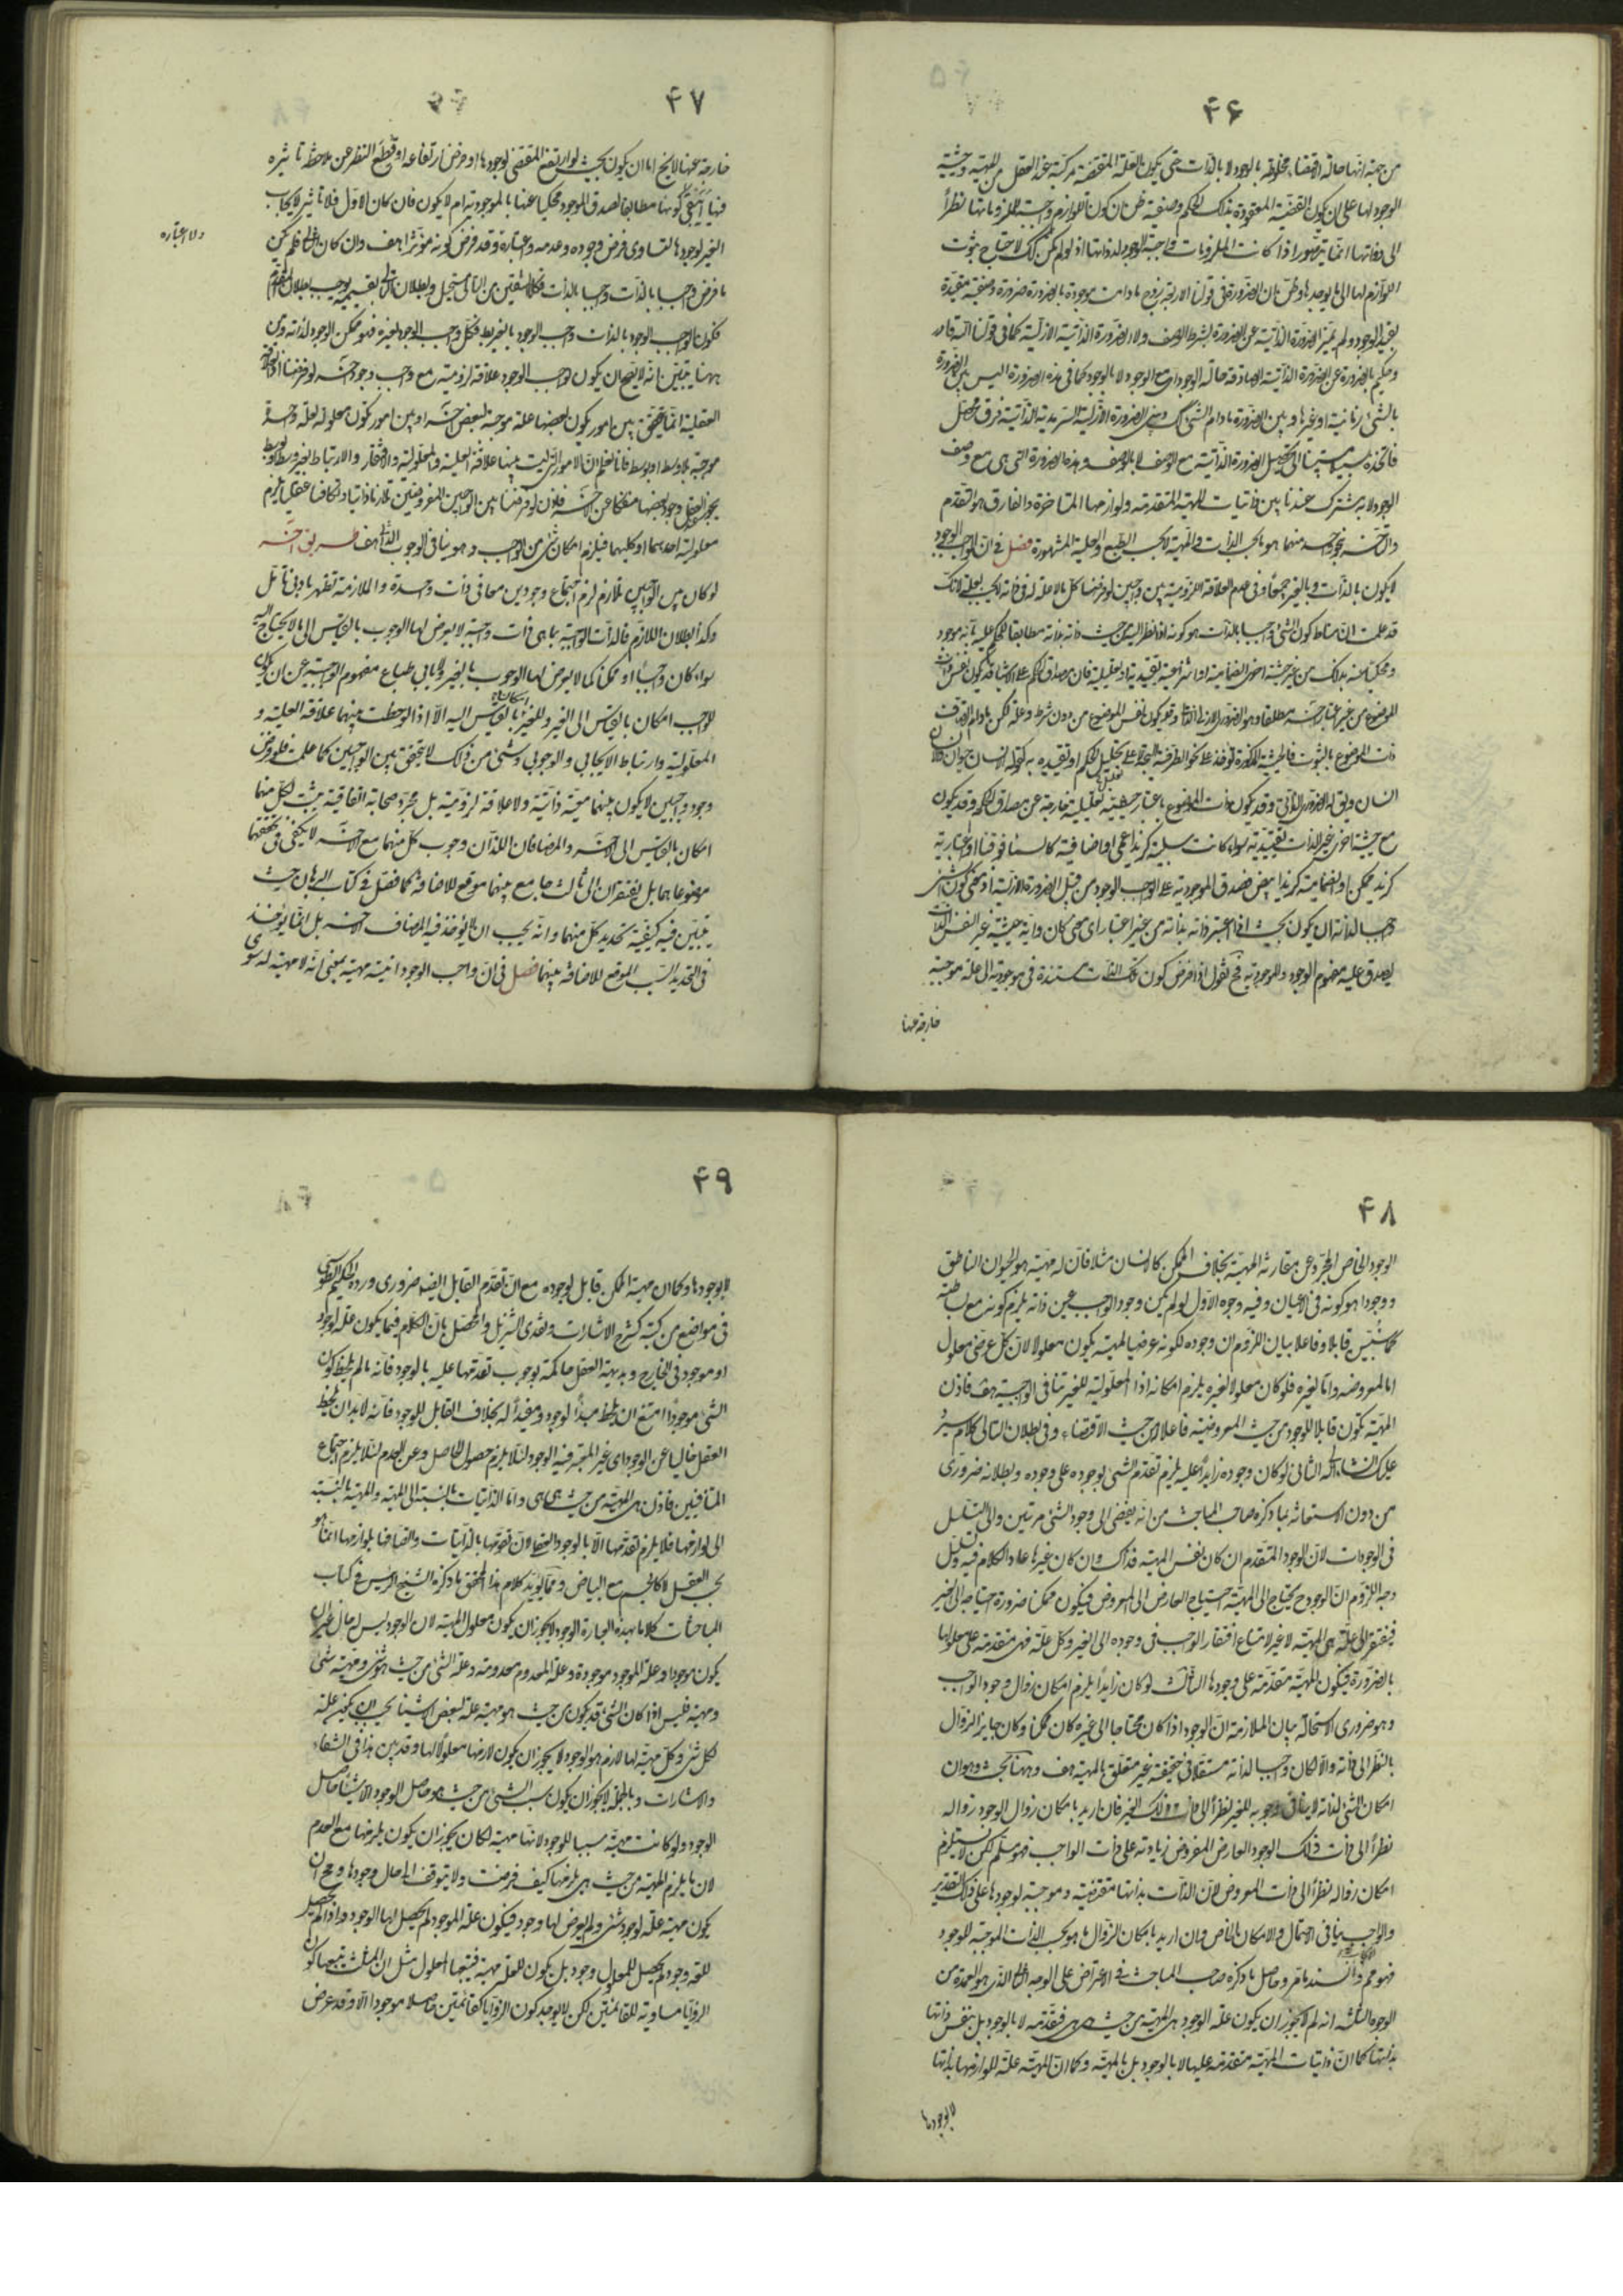 ۴۶
من جهة انها حالة الاقتضاء مخلوطة بالوجود لا بالذات حتى يكون العلة المقتضية مركبة عند العقل من المهية وحيثية
الوجود لها على ان يكون القضية المعقودة بذلك الحكم وصفية ظن ان كون اللوازم واجبة للملزوماتها نظراً
الى ذواتها انما يتصور اذا كانت الملزومات واجبة الوجود لذواتها اذ لو لم يكن كك لاحتاج ثبوت
اللوازم لها الى ما يوجدها وظن ان الضرورة في قولنا الاربعة زوج ما دامت موجودة بالضرورة ضرورة وصفية مقيدة
بقيد الوجود ولم يميز الضرورة الذاتية عن الضرورة بشرط الوصف ولا الضرورة الذاتية الازلية كما في قولنا الله قادر
وحكيم بالضرورة عن الضرورة الذاتية الصادقة حالة الوجود اي مع الوجود لا بالوجود كما في هذه الضرورة اليس بين الضرورة
بالشيء زمانية او غيرها وبين الضرورة ما دام الشيء كك وبين الضرورة الازلية السرمدية الذاتية فرق محصل
فاتخذه سبيلا مستبينا الى تحصيل الضرورة الذاتية مع الوصف لا بالوصف وهذه الضرورة التي هي مع وصف
الوجود لا به مشترك عندنا بين ذاتيات المهية المتقدمة ولوازمها المتاخرة والفارق هو التقدم
والتاخر بنحو واحد منهما هو بحسب الذات والمهية لا بحسب الطبع والعلية المشهورة فصل في ان الواجب الوجود
لا يكون بالذات وبالغير جميعا وفي عدم العلاقة اللزومية بين واجبين لو فرضنا كل ما لا علة له في ذاته لا يجب بعلة لانك
قد علمت ان مناط كون الشيء واجبا بالذات هو كونه اذا نظر اليه من حيث ذاته بذاته مطابقا للحكم عليه بانه موجود
ومحكيا عنه بذلك من غير حيثية اخرى انضمامية او انتزاعية تقييدية او تعليلية فان مصداق الحكم على الاشياء قد يكون نفس ذات
الموضوع من غير اعتبار آخر مطلقا وهو الضرورة الازلية الذاتية وقد يكون نفس الموضوع من دون شرط وعلة لكن ما دام اتصاف
ذات الموضوع بالثبوت فالحيثية المذكورة تؤخذ على نحو الظرفية البحتة لا على تعليل الحكم او تقييده به كقولنا الانسان حيوان والانسان
انسان ويق له الضرورة الذاتي وقد يكون ذات الموضوع باعتبار حيثية تعليلية خارجة عن مصداق الحكم وقد يكون
مع حيثية اخرى غير الذات تقييدية سواء كانت سلبية كزيد اعمى او اضافية كالسماء فوقنا او اعتبارية
كزيد ممكن او انضمامية كزيد ابيض فصدق الموجودية على الواجب الوجود من قبيل الضرورة الازلية اذ معنى كون شيء
واجبا لذاته ان يكون بحيث اذا اعتبر ذاته بذاته من غير اعتبار اي معنى كان واية حيثية غير النفس الذات
يصدق عليه مفهوم الوجود والموجودية فح نقول اذا فرض كون تلك الذات مستندة في موجوديته الى علة موجبة
خارجة عنها
۴۷
خارجة عنها لا يخ اما ان يكون بحيث لو ارتفع المقتضي لوجودها او فرض ارتفاعه او قطع النظر عن ملاحظة تاثيره
فيها يبقى كونها مطابقا لصدق الموجود محكيا عنها بالموجودية ام لا يكون فان كان الاول فلا تاثير لايجاب
الغير لوجودها لتساوي فرض وجوده وعدمه واعتباره وقد فرض كونه مؤثرا هف وان كان الثاني فلم يكن
ولا اعتباره
ما فرض واجبا بالذات واجبا بالذات فكلا الشقين من التالي مستحيل وبطلان التالي بقسميه يوجب بطلان المقدم
فكون الواجب الوجود بالذات واجب الوجود بالغير بط فكل واجب الوجود بغيره فهو ممكن الوجود لذاته ومن
ههنا يتبين انه لا يصح ان يكون لواجب الوجود علاقة لزومية مع واجب وجود آخر لو فرضنا اذ العلاقة
العقلية انما يتحقق بين امور يكون بعضها علة موجبة لبعض آخر او بين امور تكون معلولة لعلة واحدة
موجبة بلا واسط او بوسط فانا نعلم ان الامور التي ليست بينها علاقة العلية والمعلولية والافتقار والارتباط بغير وسط او بوسط
يجوز العقل وجود بعضها منفكا عن آخر فاذن لو فرضنا بين الواجبين المفروضين تلازما ذاتيا وتكافيا عقليا يلزم
معلولية احدهما او كليهما فيلزم امكان شيء من الواجب وهو ينافي الوجوب الذاتي هف طريق آخر
لو كان بين الواجبين تلازم لزم اجتماع وجودين معا في ذات واحدة والملازمة تظهر بادنى تامل
وكذا بطلان اللازم فالذات الواجبة بما هي ذات واجبة لا يعرض لها الوجوب بالقياس الى ما لا يحتاج اليه
سواء كان واجبا او ممكنا كما لا يعرض لها الوجوب بالغير ولا يابى طباع مفهوم الواجبية عن ان يكون
للواجب امكان بالقياس الى الغير وللغير امكان بالقياس اليه الا اذا لوحظت بينهما علاقة العلية و
المعلولية وارتباط الايجابي والوجوبي وشيء من ذلك لا يتحقق بين الواجبين كما علمت فلو فرض
وجود واجبين لا يكون بينهما معية ذاتية ولا علاقة لزومية بل مجرد صحابة اتفاقية يثبت لكل منهما
امكان بالقياس الى الآخر والمضافان اللذان وجوب كل منهما مع الآخر لا يكفي في تحققهما
موضوعاهما بل يفتقران الى ثالث جامع بينهما موقع للاضافة كما فصل في كتاب البرهان حيث
تبين فيه كيفية تحديد كل منهما وانه يجب ان لا يؤخذ فيه المضاف آخر بل انما يؤخذ
في التحديد السبب الموقع للاضافة بينهما فصل في ان واجب الوجود انيته مهيته بمعنى انه لا مهية له سوى
۴۸
الوجود الخاص المجرد عن مقارنة المهية بخلاف الممكن كالانسان مثلا فان له مهية هو الحيوان الناطق
ووجودا هو كونه في الاعيان وفيه وجوه الاول لو لم يكن وجود الواجب عين ذاته يلزم كونه مع بساطته
كما سنبين قابلا وفاعلا بيان اللزوم ان وجوده لكونه عرضيا لمهيته يكون معلولا لان كل عرضي معلول
اما لمعروضه واما لغيره فلو كان معلولا لغيره يلزم امكانه اذا المعلولية للغير تنافي الواجبية هف فاذن
المهية تكون قابلا للوجود من حيث المعروضية فاعلا من حيث الاقتضاء وفي بطلان التالي كلام سيرد
عليك انشاء الله الثاني لو كان وجوده زايدا عليه يلزم تقدم الشيء بوجوده على وجوده وبطلانه ضروري
من دون الاستعانة بما ذكره صاحب المباحث من انه يفضي الى وجود الشيء مرتين والى التسلسل
في الوجودات لان الوجود المتقدم ان كان نفس المهية فذاك وان كان غيرها عاد الكلام فيه وتسلسل
وجه اللزوم ان الوجود ح يحتاج الى المهية احتياج العارض الى المعروض فيكون ممكنا ضرورة احتياجه الى الغير
فيفتقر الى علة هي المهية لا غير لامتناع افتقار الواجب في وجوده الى الغير وكل علة فهي متقدمة على معلولها
بالضرورة فيكون المهية متقدمة على وجودها الثالث لو كان زايدا يلزم امكان زوال وجود الواجب
وهو ضروري الاستحالة بيان الملازمة ان الوجود اذا كان محتاجا الى غيره كان ممكنا وكان جايز الزوال
بالنظر الى ذاته والا لكان واجبا لذاته مستقلا في حقيقته غير متعلق بالمهية هف وههنا بحث وهو ان
امكان الشيء لذاته لا ينافي وجوبه للغير نظرا الى ذات ذلك الغير فان اريد بامكان زوال الوجود زواله
نظرا الى ذات ذلك الوجود العارض المفروض زيادته على ذات الواجب فهو مسلم لكن لا يستلزم
امكان زواله نظرا الى ذات المعروض لان الذات بذاتها مقتضية وموجبة لوجودها على ذلك التقدير
والواجب ينافي الاحتمال والامكان الخاص وان اريد بامكان الزوال ما هو بحسب الذات الموجبة للوجود
فهو مم والسند ما مر وحاصل ما ذكره صاحب المباحث في الاعتراض على الوجه الثاني الذي هو العمدة من
الوجوه الثلثة انه لم لا يجوز ان يكون علة الوجود هي المهية من حيث هي هي فتقدمه لا بالوجود بل بنفس ذاتها
بذاتها كما ان ذاتيات المهية متقدمة عليها لا بالوجود بل بالمهية وكما ان المهية علة للوازمها بذاتها
لا بوجودها
۴۹
لا بوجودها وكما ان مهية الممكن قابل لوجوده مع ان تقدم القابل ايضا ضروري ورده الحكيم الطوسي
في مواضع من كتبه كشرح الاشارات ونقدي التنزيل والمحصل بان الكلام فيما يكون علة لوجود
او موجود في الخارج وبديهة العقل حاكمة بوجوب تقدمها عليه بالوجود فانه ما لم يلحظ كون
الشيء موجودا امتنع ان يلحظ مبدأ لوجود ومفيدا له بخلاف القابل للوجود فانه لا بد ان يلحظه
العقل خاليا عن الوجود اي غير المعتبر فيه الوجود لئلا يلزم حصول الحاصل وعن العدم لئلا يلزم اجتماع
المتنافيين فاذن هي المهية من حيث هي هي واما الذاتيات بالنسبة الى المهية والمهية بالنسبة
الى لوازمها فلا يلزم تقدمها الا بالوجود العقلي لان تقومها بالذاتيات واتصافها بلوازمها انما هو
بحسب العقل لا كالجسم مع البياض ومما يؤيد كلام هذا المحقق ما ذكره الشيخ الرئيس في كتاب
المباحثات كلاما بهذه العبارة الوجود لا يجوز ان يكون معلول المهية لان الوجود ليس له حال غير ان
يكون موجودا وعلة الموجود موجودة وعلة المعدوم معدومة وعلة الشيء من حيث هو شيء ومهية شيء
ومهية فليس اذا كان الشيء قد يكون من حيث هو مهية علة لبعض الاشياء يجب ان يكون علة
لكل شيء وكل مهية لها لازم هو الوجود لا يجوز ان يكون لازمها معلولا لها وقد بين هذا في الشفاء
والاشارات وبالجملة لا يجوز ان يكون سبب الشيء من حيث هو حاصل الوجود الا شيئا حاصل
الوجود ولو كانت مهية سببا للوجود لانها مهية لكان يجوز ان يكون يلزمها مع العدم
لان ما يلزم المهية من حيث هي يلزمها كيف فرضت ولا يتوقف الى حال وجودها ومح ان
يكون مهية علة لوجود شيء ولم يعرض لها وجود فيكون علة الموجود لم يحصل لها الوجود واذا لم يحصل
للعلة وجود لم يحصل للمعلول وجود بل يكون للعلة مهية فيتبعها المعلول مثل ان المثلث يتبعها كون
الزوايا مساوية للقائمتين لكن لا يوجد كون الزوايا كقائمتين حاصلا موجودا الا وقد عرض